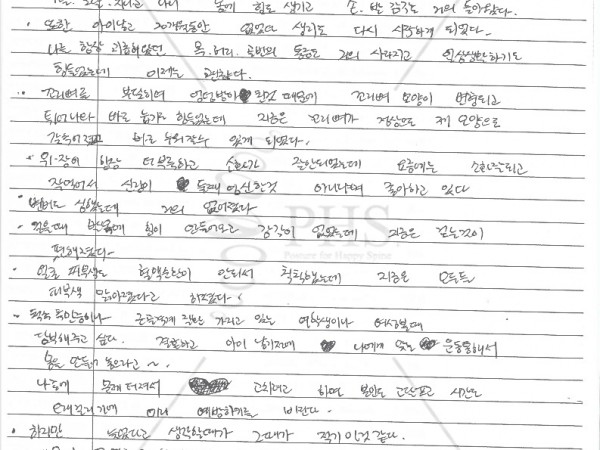 또한 아이낳고 20개월동안 없었던 생리도 다시 시작하게 되었다.
나를 항상 괴롭혀왔던 목.허리. 골반의 통증도 거의 사라지고 일상생활하기도
힘들었는데 이제는 괜찮다.
꼬리뼈를 부딪히며 엉덩방아 찧은 것 때문에 꼬리뼈 모양이 변형되고
튀어나와 바로 눕기가 힘들었는데 지금은 꼬리뼈가 정상으로 제 모양으로
바로 누워잘수 있게 되었다.
위.장이 항상 더부룩하고 소화가 잘안되었는데 요즘에는 소화가 잘되고
작년에서 신랑이 임신한것 아니냐며 좋아하고 있다
변비도 심했는데 거의 없어졌다
걸을때 발에 힘이 안들어오고 감각이 없었는데 지금은 걷는것이
편해졌다
얼굴 피부색도 혈액순환이 안되서 칙칙했는데 지금은 모두들
피부색 맑아졌다고 하신다.
근골격계 질환 가지고 있는 여학생이나 여성분께
당부해주고 싶다. 결혼하고 아이 낳기전에 나에게 맞는 운동을해서
몸을 만들어 놓으라고~
나중에 문제 터져서 고치려고 하면 본인도 고단하고 시간도
오래걸리기에 미리 예방하기를 바란다.
하지만 늦었다고 생각할때가 그때가 적기 인것 같다.
PHS
Posture for Happy Spine